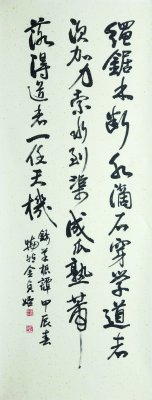 繩鋸木斷水滴石穿学道者
須加力索水到渠成瓜熟蔕
落得道者一任天機
錄菜根譚 甲辰春